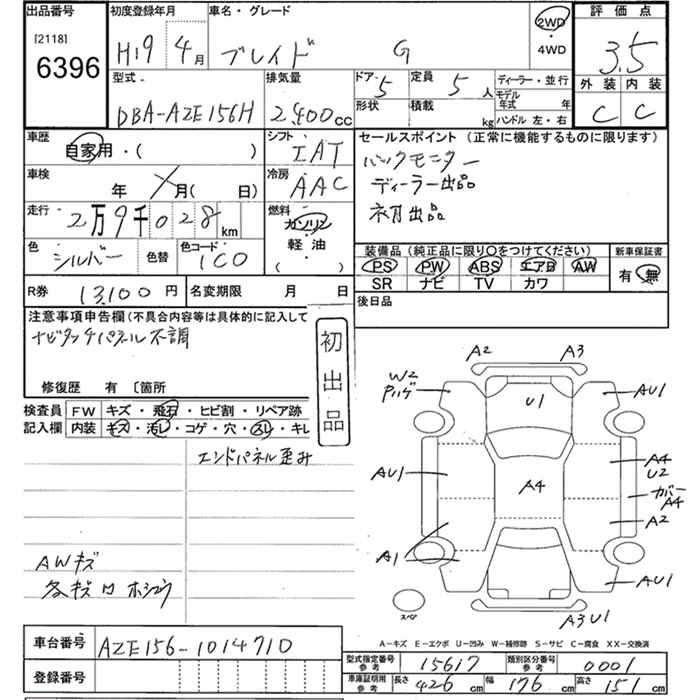 出品番号 初度登録年月 車名・グレード 評価点
[2118] 6396 H19年 4月 ブレイド G 2WD ・4WD 3.5
外装 内装
C C
型式 排気量 ドア 定員 ディーラー・並行
DBA-AZE156H 2,400cc 5 5人 モデル年式 年
形状 積載 kg ハンドル 左・右
車歴 自家用・( ) シフト IAT セールスポイント (正常に機能するものに限ります)
車検 年 月( 日) 冷房 AAC バックモニター
ディーラー出品
走行 2万9千028km 燃料 ガソリン 初出品
軽油
( )
色 シルバー 色替 色コード 1C0 装備品 (純正品に限り○をつけてください) 新車保証書
PS PW ABS エアB AW 有・無
SR ナビ TV カワ
R券 13,100円 名変期限 月 日 後日品
注意事項申告欄(不具合内容等は具体的に記入して
ナビタッチパネル不調
初出品
修復歴 有 〔箇所
検査員記入欄 FW キズ・飛石・ヒビ割・リペア跡
内装 キズ・汚レ・コゲ・穴・スレ・キレ
エンドパネル歪み
AWキズ
各キズ凹
A2 A3
W2 AU1
U1
AU1 A4 A4
U2
カバー
A4
A2
A1 AU1
スペア
A3 U1
A-キズ E-エクボ U-凹み W-補修跡 S-サビ C-腐食 XX-交換済
車台番号 AZE156-1014710
型式指定番号 参考 15617 類別区分番号 参考 0001
登録番号
車庫証明用 参考 長さ 426cm 幅 176cm 高さ 151cm